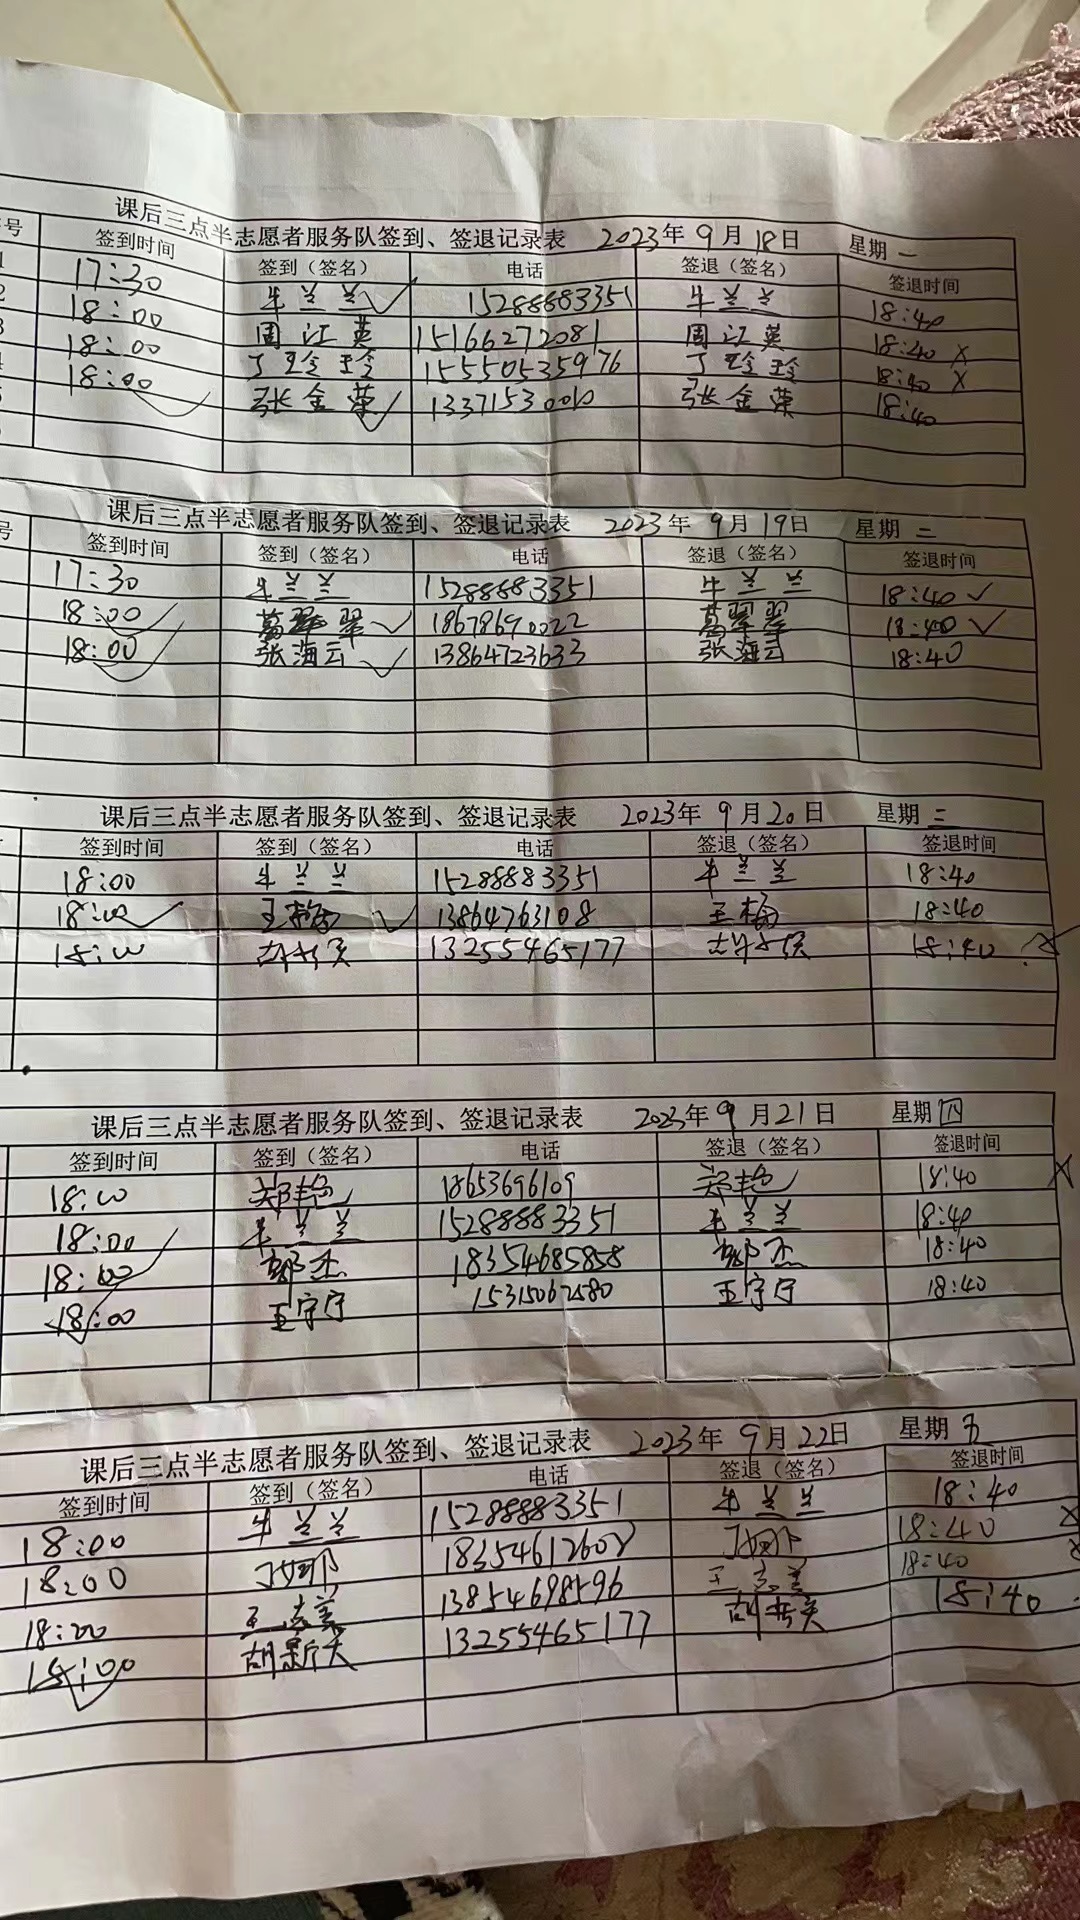 课后三点半志愿者服务队签到、签退记录表 2023年9月18日 星期一
号 签到时间 签到（签名） 电话 签退（签名） 签退时间
17:30 牛兰兰 15288883351 牛兰兰 18:40
18:00 周江英 15166272081 周江英 18:40 ×
18:00 丁玲玲 15550535976 丁玲玲 18:40 ×
18:00 张金荣 13371530010 张金荣 18:40
课后三点半志愿者服务队签到、签退记录表 2023年9月19日 星期二
号 签到时间 签到（签名） 电话 签退（签名） 签退时间
17:30 牛兰兰 15288883351 牛兰兰 18:40 ✓
18:00 葛翠翠 18678690022 葛翠翠 18:40 ✓
18:00 张海云 13864723633 张海云 18:40
课后三点半志愿者服务队签到、签退记录表 2023年9月20日 星期三
签到时间 签到（签名） 电话 签退（签名） 签退时间
18:00 牛兰兰 15288883351 牛兰兰 18:40
18:00 王梅 13864763108 王梅 18:40
18:00 13255465177 18:40
课后三点半志愿者服务队签到、签退记录表 2023年9月21日 星期四
签到时间 签到（签名） 电话 签退（签名） 签退时间
18:00 郑艳 18653696109 郑艳 18:40
18:00 牛兰兰 15288883351 牛兰兰 18:40
18:00 郭杰 18354685858 郭杰 18:40
18:00 王宇宁 15315062580 王宇宁 18:40
课后三点半志愿者服务队签到、签退记录表 2023年9月22日 星期五
签到时间 签到（签名） 电话 签退（签名） 签退时间
18:00 牛兰兰 15288883351 牛兰兰 18:40
18:00 丁娜 18354612608 丁娜 18:40
18:00 13854698596 18:40
18:00 13255465177 18:40